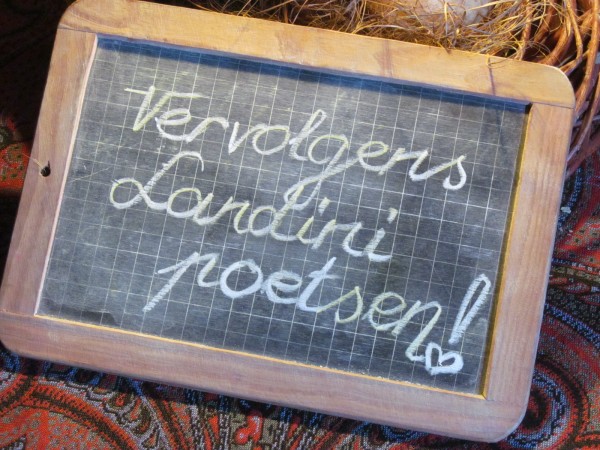 Vervolgens
Landini
poetsen!